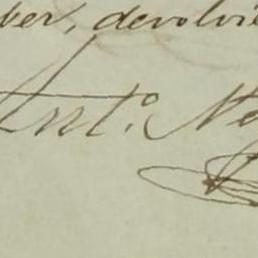 ver, devolvie
Ant.º Ne